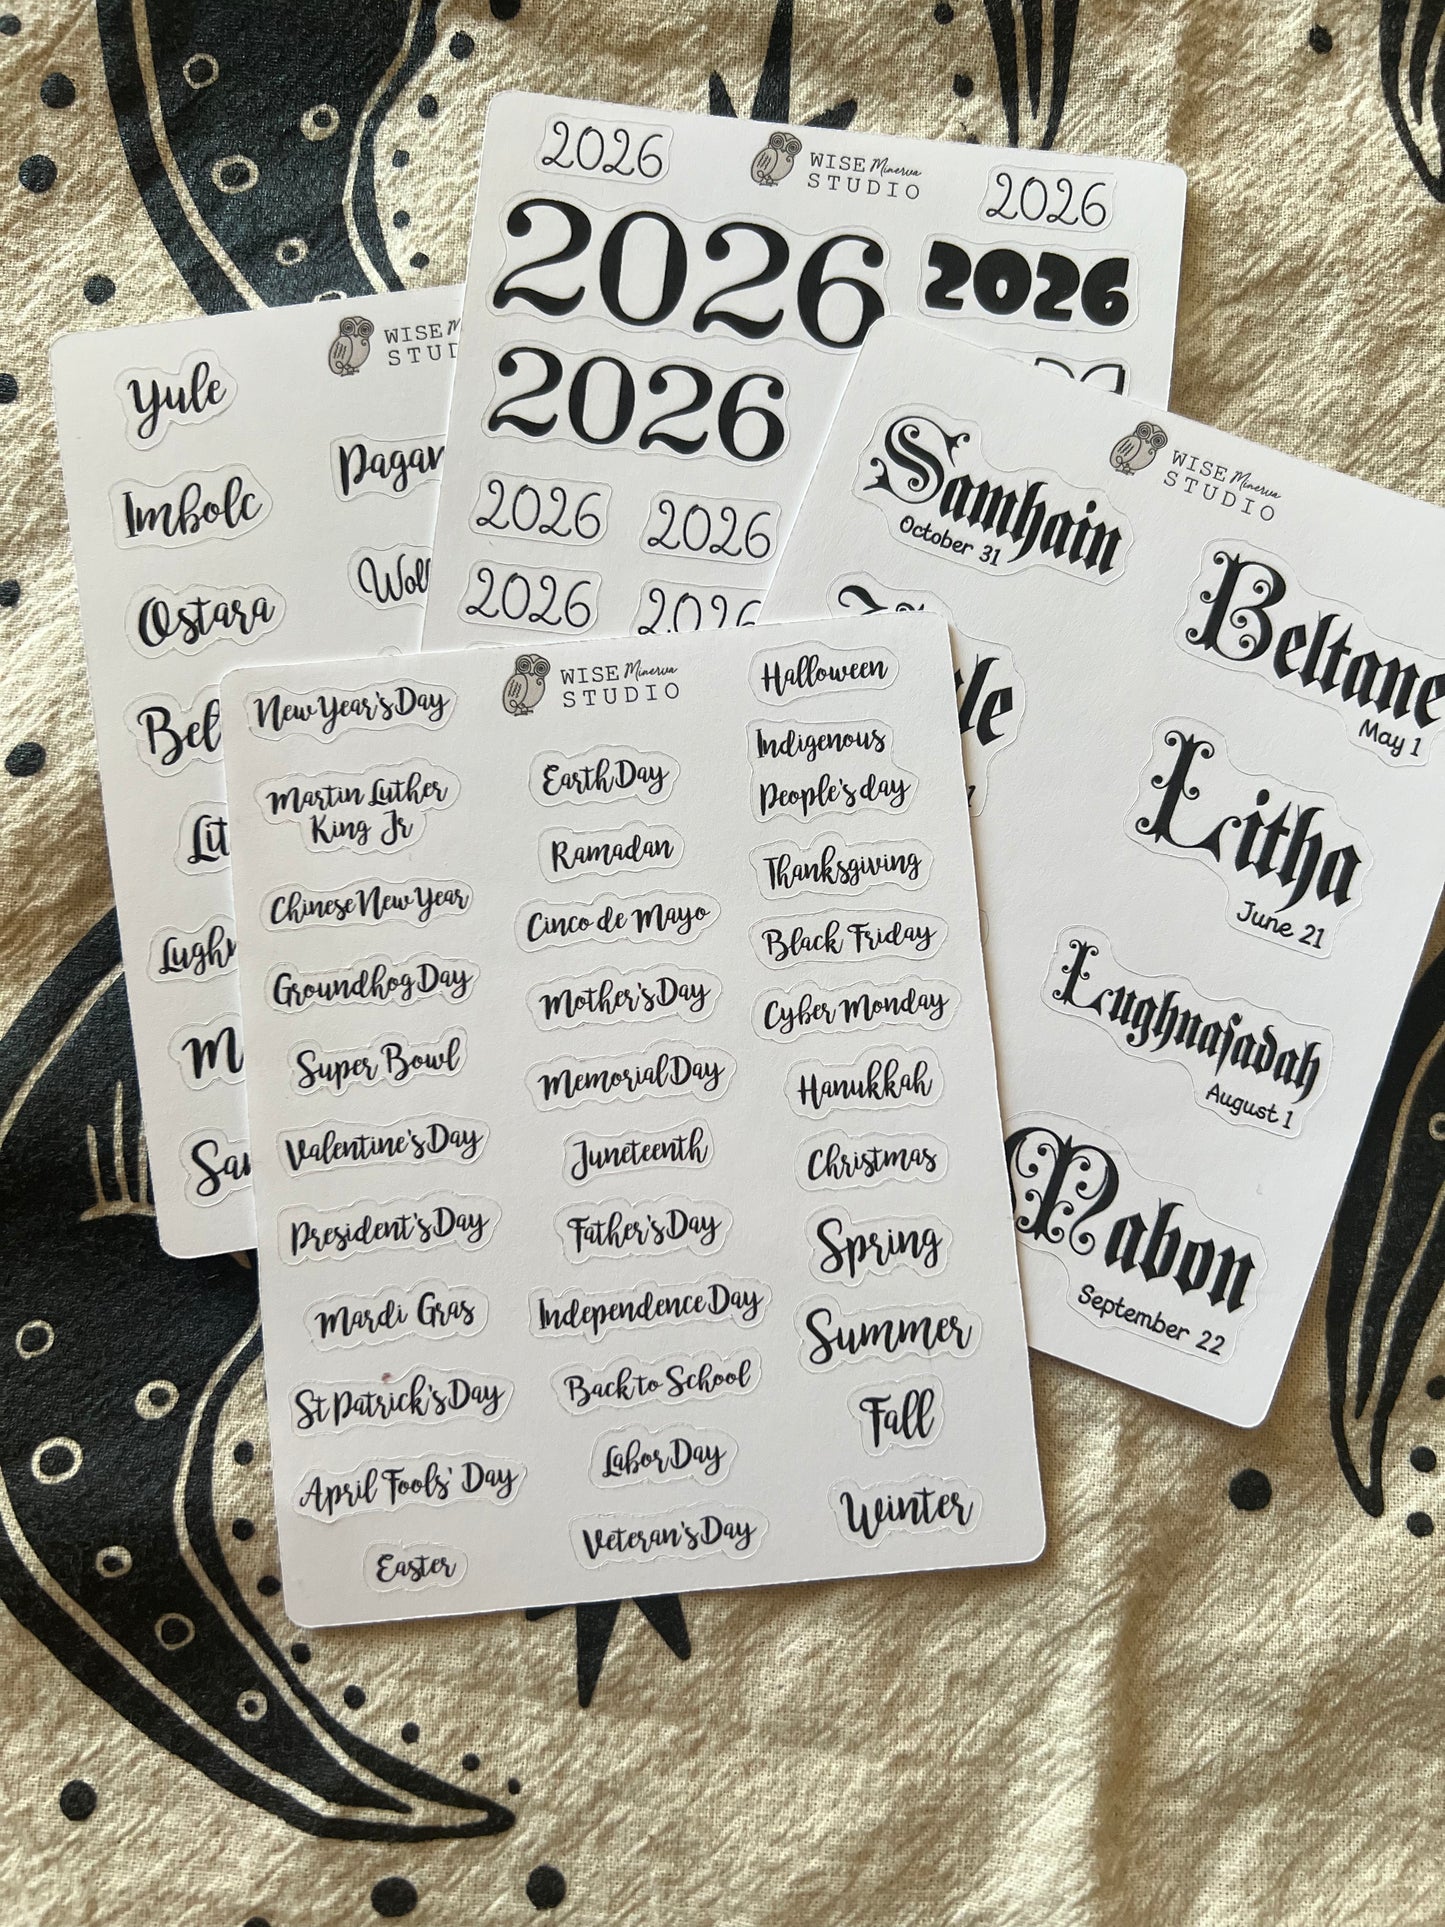 2026
WISE Minerva
STUDIO
2026
2026
2026
2026
2026
2026
2026
2026
WISE
Yule
Imbolc
Ostara
WISE Minerva
STUDIO
Samhain
October 31
Beltane
May 1
Litha
June 21
Lughnasadah
August 1
Mabon
September 22
WISE Minerva
STUDIO
New Year's Day
Martin Luther
King Jr
Chinese New Year
Groundhog Day
Super Bowl
Valentine's Day
President's Day
Mardi Gras
St Patrick's Day
April Fools' Day
Easter
Earth Day
Ramadan
Cinco de Mayo
Mother's Day
Memorial Day
Juneteenth
Father's Day
Independence Day
Back to School
Labor Day
Veteran's Day
Halloween
Indigenous
People's day
Thanksgiving
Black Friday
Cyber Monday
Hanukkah
Christmas
Spring
Summer
Fall
Winter